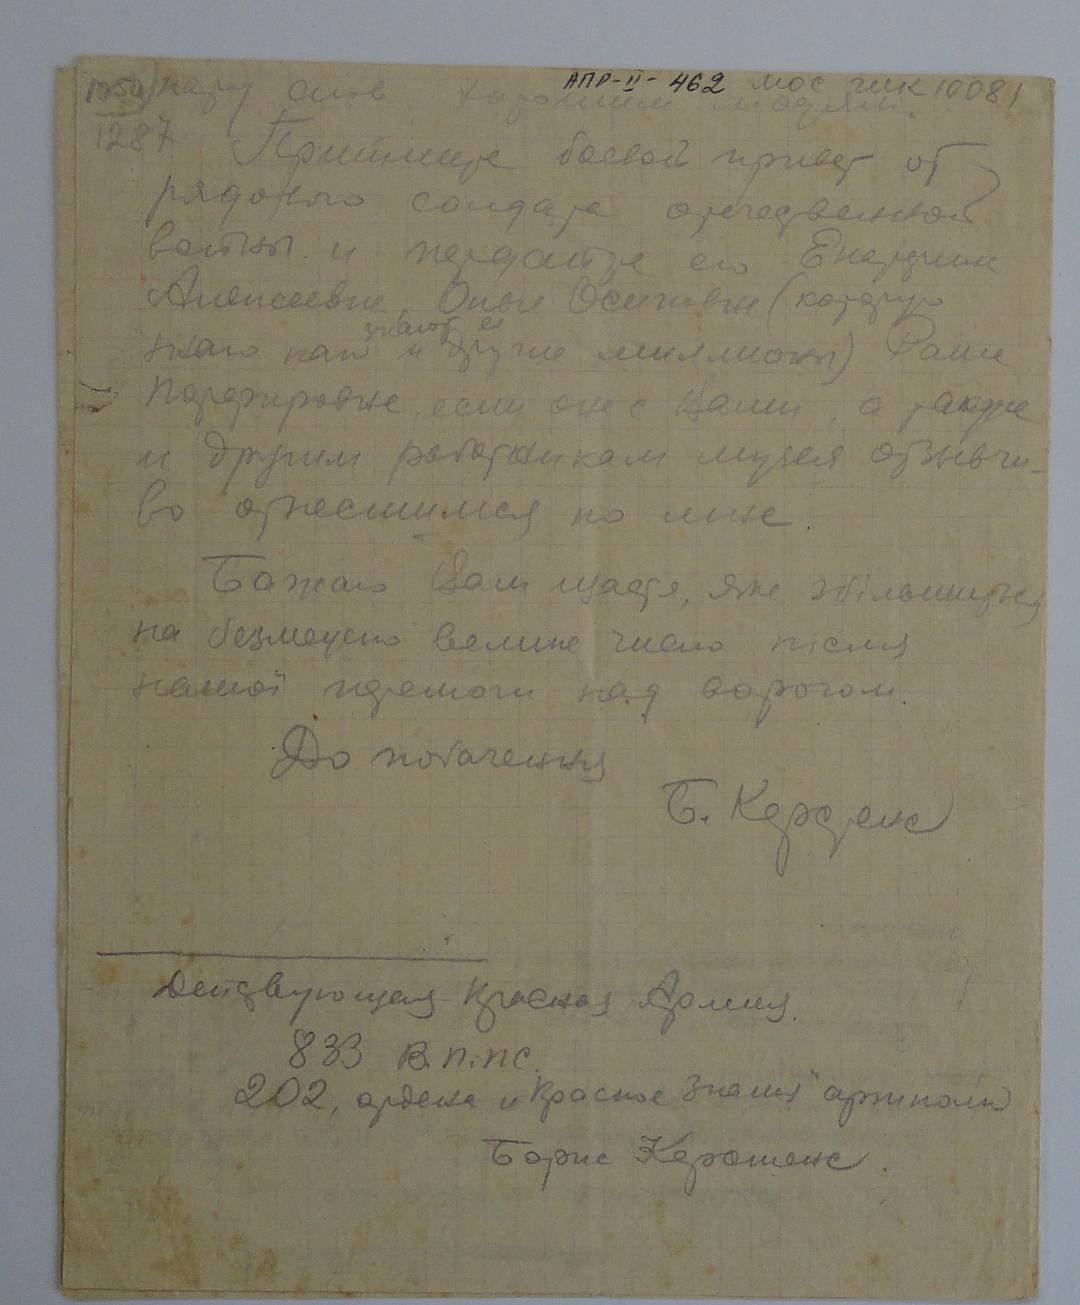 АПР-II-462 МОС ЧИК 10081
1287
пару слов хорошим людям.
Прийміть боевой привет от
рядового солдата отечественной
войны и передайте его Екатерине
Алексеевне, Ользе Осиповне (которую
знаю как знают ее и другие миллионы) Раисе
если она с Вами, а также
и другим работникам музея отзывчи-
во отнесшимся ко мне.
Бажаю Вам щастя, яке збільшиться
на безмежно велике число після
нашої перемоги над ворогом.
До побачення
Б.
Действующая Красная Армия.
833 В.П.ПС.
202, ордена "Красное Знамя" артполк
Борис